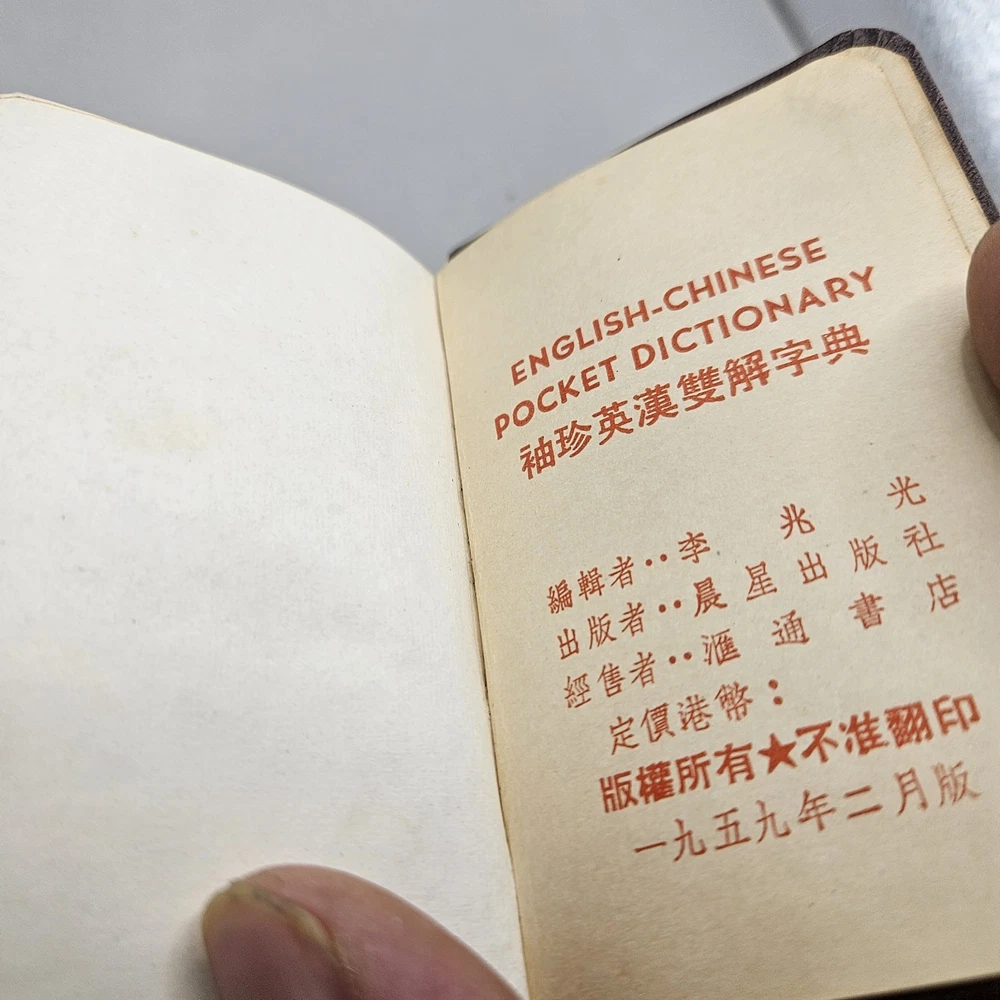 ENGLISH-CHINESE
POCKET DICTIONARY
袖珍英漢雙解字典
編輯者：李兆光
出版者：晨星出版社
經售者：滙通書店
定價港幣：
版權所有★不准翻印
一九五九年二月版